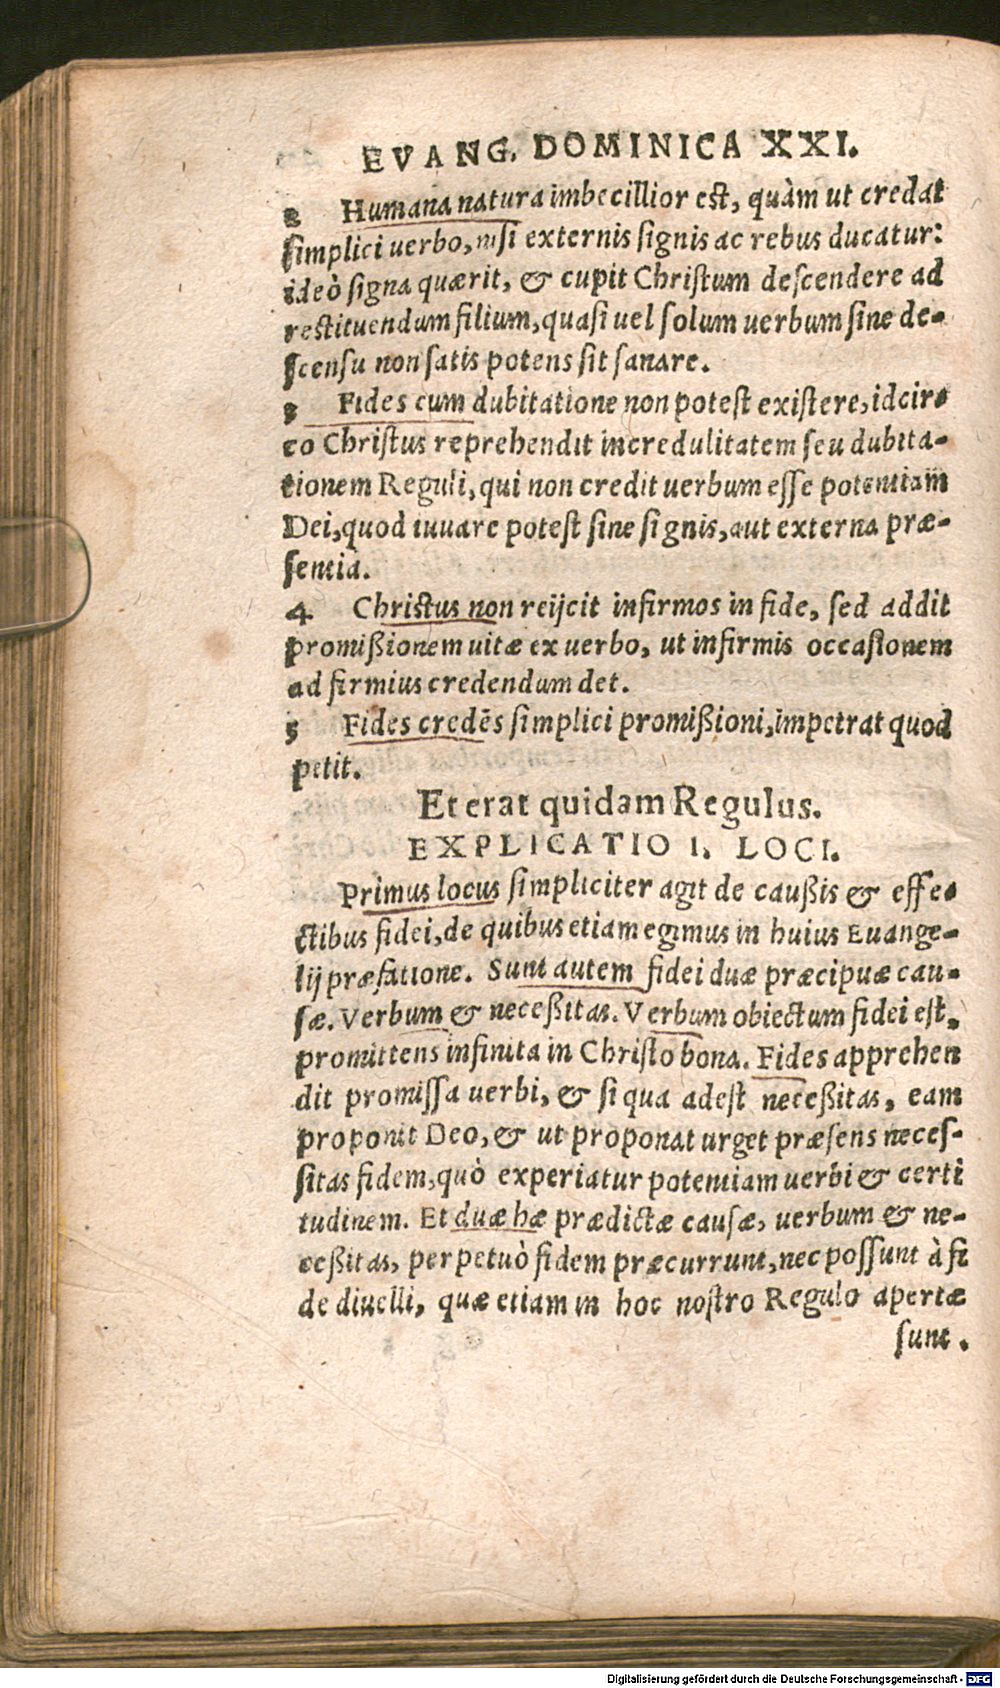 EVANG. DOMINICA XXI.
2 Humana natura imbecillior est, quàm ut credat
simplici uerbo, nisi externis signis ac rebus ducatur:
ideò signa quærit, & cupit Christum descendere ad
restituendum filium, quasi uel solum uerbum sine de-
scensu non satis potens sit sanare.
3 Fides cum dubitatione non potest existere, idcir-
co Christus reprehendit incredulitatem seu dubita-
tionem Reguli, qui non credit uerbum esse potentiam
Dei, quod iuuare potest sine signis, aut externa præ-
sentia.
4 Christus non reijcit infirmos in fide, sed addit
promißionem uitæ ex uerbo, ut infirmis occasionem
ad firmius credendum det.
5 Fides credẽs simplici promißioni, impetrat quod
petit.
Et erat quidam Regulus.
EXPLICATIO I. LOCI.
Primus locus simpliciter agit de caußis & effe-
ctibus fidei, de quibus etiam egimus in huius Euange-
lij præfatione. Sunt autem fidei duæ præcipuæ cau-
sæ. Verbum & neceßitas. Verbum obiectum fidei est,
promittens infinita in Christo bona. Fides apprehen
dit promissa uerbi, & si qua adest neceßitas, eam
proponit Deo, & ut proponat urget præsens neces-
sitas fidem, quò experiatur potentiam uerbi & certi
tudinem. Et duæ hæ prædictæ causæ, uerbum & ne-
ceßitas, perpetuò fidem præcurrunt, nec possunt à fi
de diuelli, quæ etiam in hoc nostro Regulo apertæ
sunt.
Digitalisierung gefördert durch die Deutsche Forschungsgemeinschaft - DFG